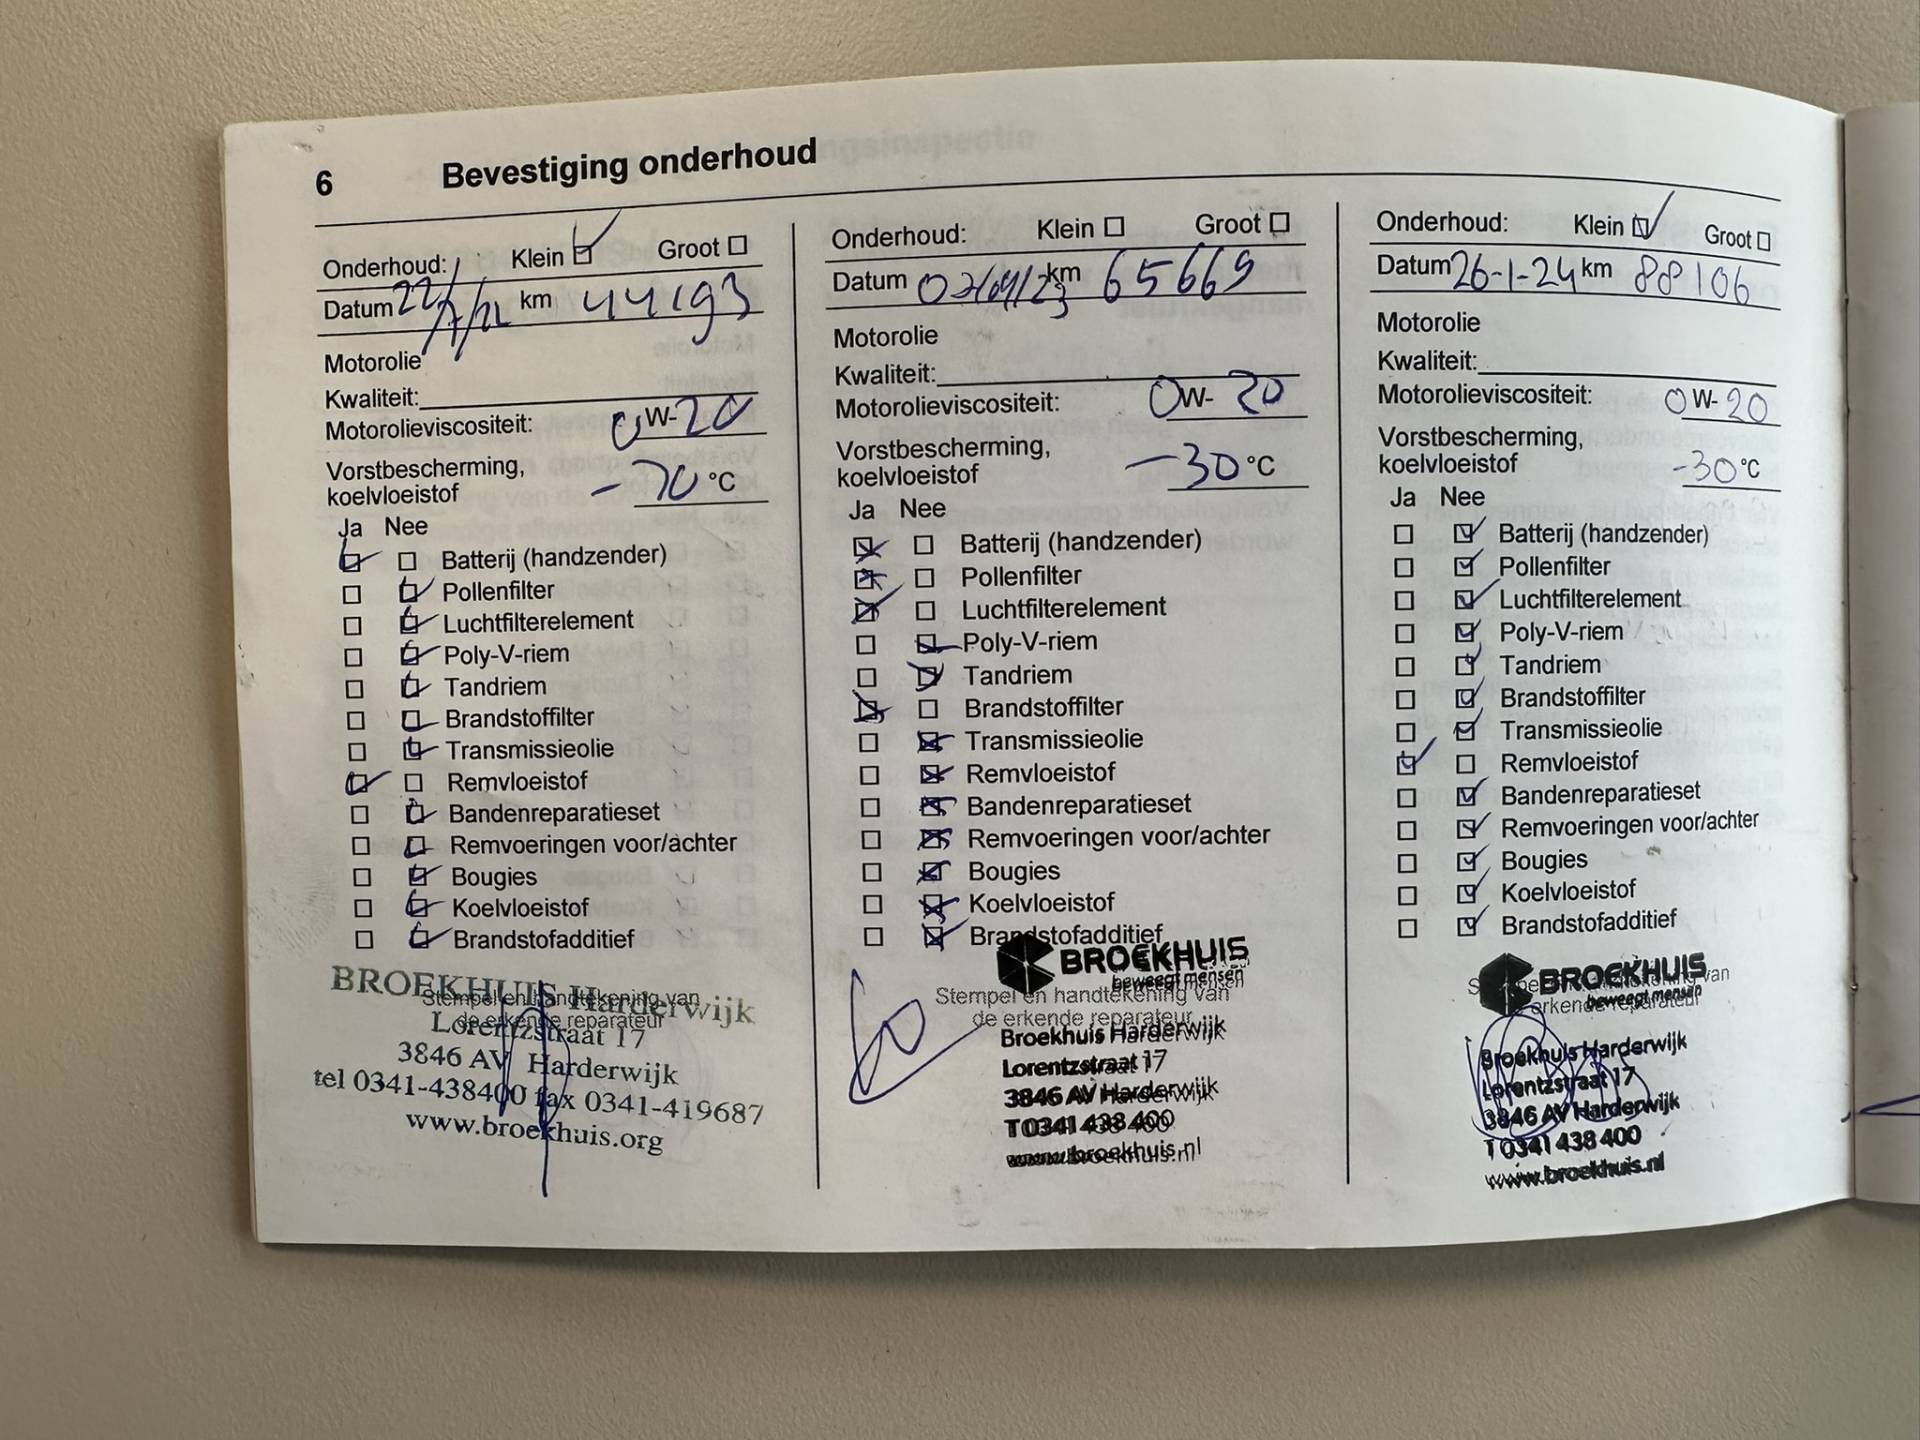 6 Bevestiging onderhoud
Onderhoud: Klein Groot
Datum 22/7/22 km 44193
Motorolie
Kwaliteit:
Motorolieviscositeit: 0W-20
Vorstbescherming,
koelvloeistof - °C
Ja Nee
Batterij (handzender)
Pollenfilter
Luchtfilterelement
Poly-V-riem
Tandriem
Brandstoffilter
Transmissieolie
Remvloeistof
Bandenreparatieset
Remvoeringen voor/achter
Bougies
Koelvloeistof
Brandstofadditief
Stempel en handtekening van
de erkende reparateur
BROEKHUIS Harderwijk
Lorentzstraat 17
3846 AV Harderwijk
tel 0341-438400 fax 0341-419687
www.broekhuis.org
Onderhoud: Klein Groot
Datum km 65669
Motorolie
Kwaliteit:
Motorolieviscositeit: 0W-20
Vorstbescherming,
koelvloeistof -30°C
Ja Nee
Batterij (handzender)
Pollenfilter
Luchtfilterelement
Poly-V-riem
Tandriem
Brandstoffilter
Transmissieolie
Remvloeistof
Bandenreparatieset
Remvoeringen voor/achter
Bougies
Koelvloeistof
Brandstofadditief
BROEKHUIS
beweegt mensen
Stempel en handtekening van
de erkende reparateur
Broekhuis Harderwijk
Lorentzstraat 17
3846 AV Harderwijk
T 0341 438 400
www.broekhuis.nl
Onderhoud: Klein Groot
Datum 26-1-24 km 88106
Motorolie
Kwaliteit:
Motorolieviscositeit: 0W-20
Vorstbescherming,
koelvloeistof -30°C
Ja Nee
Batterij (handzender)
Pollenfilter
Luchtfilterelement
Poly-V-riem
Tandriem
Brandstoffilter
Transmissieolie
Remvloeistof
Bandenreparatieset
Remvoeringen voor/achter
Bougies
Koelvloeistof
Brandstofadditief
BROEKHUIS
beweegt mensen
erkende reparateur
Broekhuis Harderwijk
Lorentzstraat 17
3846 AV Harderwijk
T 0341 438 400
www.broekhuis.nl